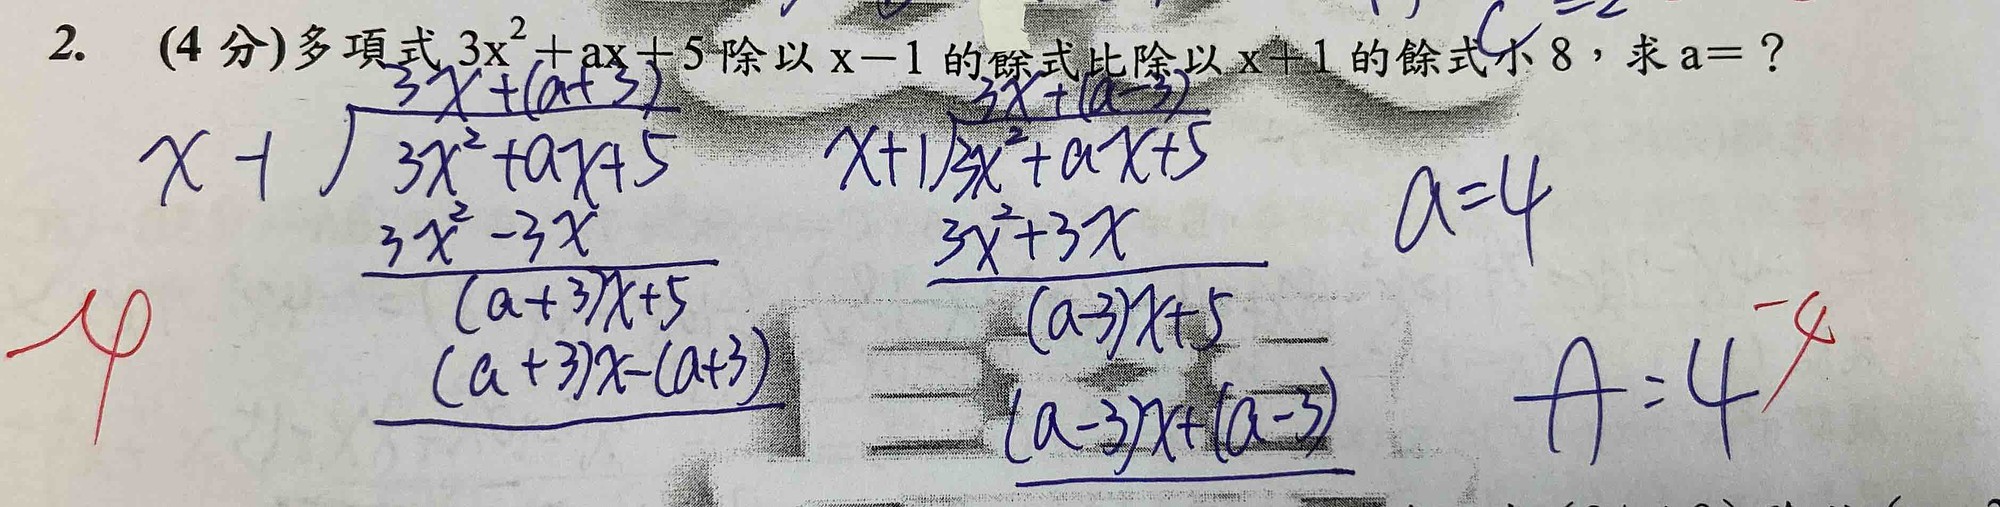 2. (4 分)多項式 3x²+ax+5 除以 x－1 的餘式比除以 x+1 的餘式小 8，求 a=？
3x+(a+3)
x-1 3x²+ax+5
3x²-3x
(a+3)x+5
(a+3)x-(a+3)
3x+(a-3)
x+1 3x²+ax+5
3x²+3x
(a-3)x+5
(a-3)x+(a-3)
a=4
A=4
-4
-4